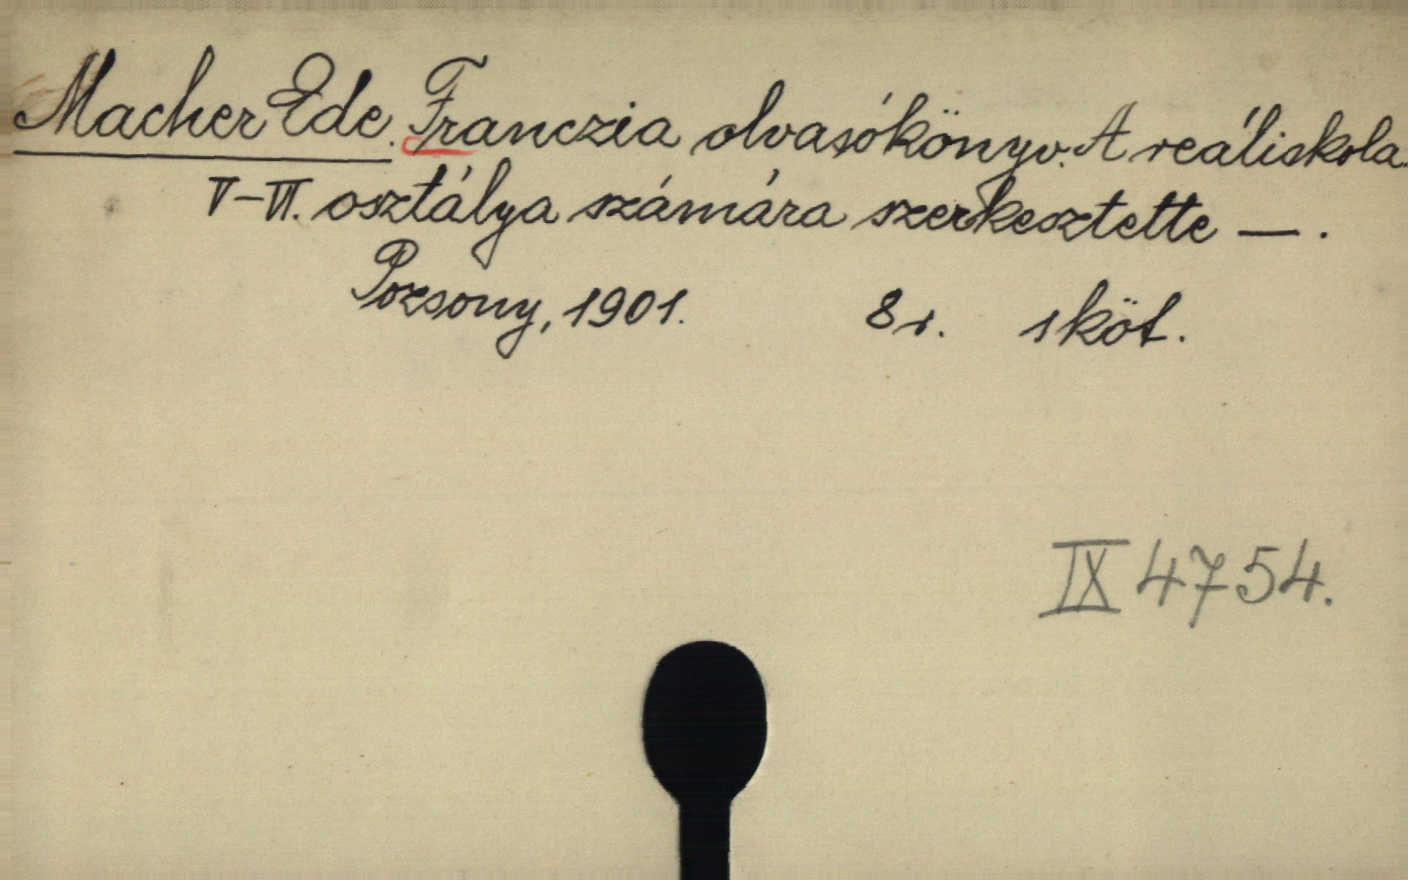 Macher Ede. Franczia olvasókönyv. A reáliskola
V-VI. osztálya számára szerkesztette —.
Pozsony, 1901. 8r. 1 köt.
IX 4754.